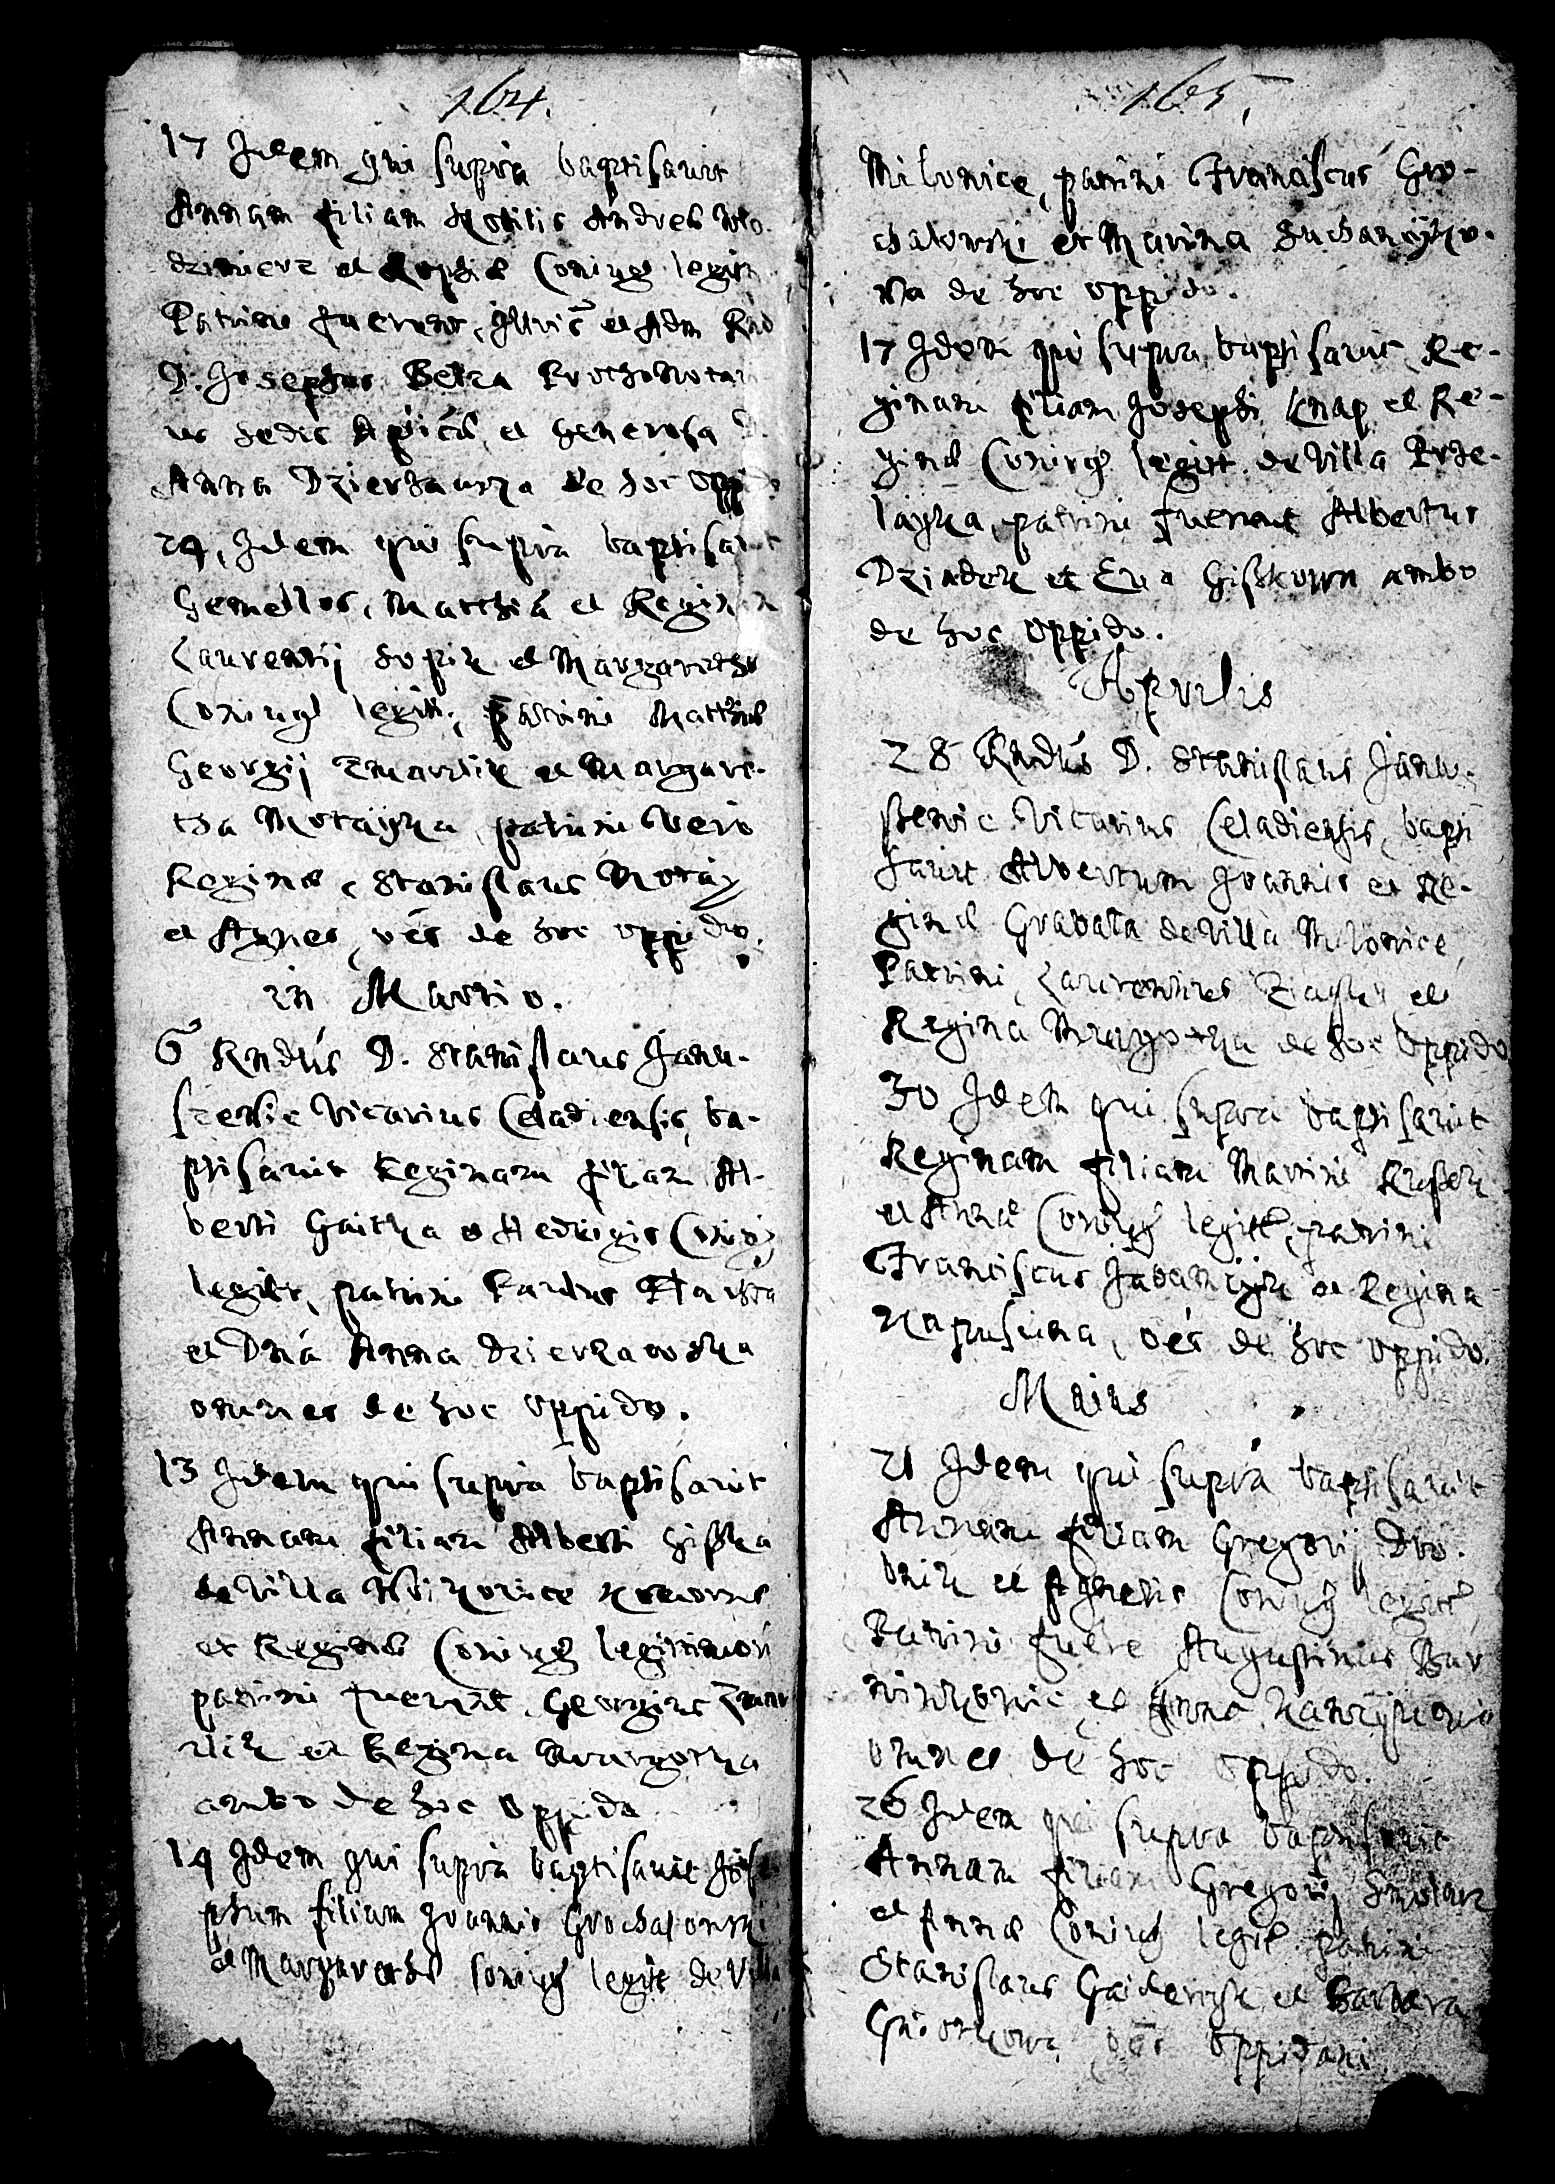 164.
17 Idem qui supra baptisavit
Annam filiam Nobilis Andreæ Wlo-
dzimierz et Sophiæ Coniug legitt
Patrini fuerunt, et Adm Rnd
D. Josephus Betza Prothonotari
us Sedis et Generosa D.
Anna Dzierzawska de hoc oppido
24, Idem qui supra baptisavit
Gemellos, Matthiā et Reginam
Laurentij Sopik et Margarethæ
Coniugl legitt, patrini Matthiæ
Georgij Zmarzlik et Margare-
tha Motayka, patrini vero
Reginæ, Stanislaus Motay
et Agnes, oēs de hoc oppido.
in Martio.
6 Rndūs D. Stanislaus Janu-
szewic Vicarius Celadiensis, ba-
ptisavit Reginam filiam Al-
berti Gaitka et Hedvigis Coniug
legitt, patrini Paulus
et Dnā Anna Dzierzawska
omnes de hoc oppido.
13 Idem qui supra baptisavit
Annam filiam Alberti Giszka
de Villa
et Reginæ Coniug legitimorū
patrini fuerunt, Georgius Zmar
zlik et Regina Mrurgotka
ambo de hoc oppido
14 Idem qui supra baptisavit Jose
phum filium Joannis Grochalowski
et Margarethæ coniug legitt de Villa
165,
Milowice, patrini Franciscus Gro-
chalowski et Marina Suchanszko-
wa de hoc oppido.
17 Idem qui supra baptisavit Re-
ginam filiam Josephi Knap et Re-
ginæ Coniug legitt. de Villa Prze-
layka, patrini fuerunt Albertus
Dziadek et Eva Giszkowa ambo
de hoc oppido.
Aprilis
28 Rndūs D. Stanislaus Janu-
szewic Vicarius Celadiensis, bapti
savit Albertum Joannis et Re-
ginæ Grabala de Villa Milowice,
Patrini, Laurentius et
Regina Mrurgotka de hoc oppido
30 Idem qui supra baptisavit
Reginam filiam Martini
et Annæ Coniug legitt, patrini
Franciscus et Regina
oēs de hoc oppido.
Maius
21 Idem qui supra baptisavit
Annam filiam Gregorij Dro-
bnik et Agnetis Coniug legitt
Patrini fuere Augustinus Bar
et Anna
omnes de hoc oppido.
26 Idem qui supra baptisavit
Annam filiam Gregorij Smolarz
et Annæ Coniug legit patrini
Stanislaus et Barbara
oēs oppidani